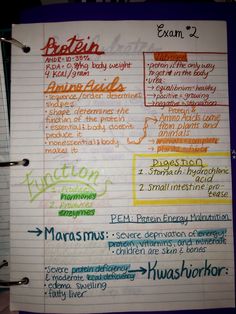 Exam #2
Protein
AMDR = 10-35%
RDA = 0.8g/kg body weight
4 kcal/gram
Nitrogen
• protein if the only way
to get in the body
• urea
→ equilibrium = healthy
→ positive = growing
→ negative =
Amino Acids
• sequence/order determines
shape
• shape determines the
function of the protein
• essential = body doesn't
produce it
• nonessential = body
makes it
Protein &
Amino Acids come
from plants and
animals
Function
1.
hormones
2. Produces
enzymes
Digestion
1. Stomach: hydrochloric
acid
2. Small intestine: pro
tease
PEM: Protein Energy Malnutrition
→ Marasmus: • Severe deprivation of energy,
protein, vitamins, and minerals
• children are skin & bones
• severe protein deficiency
& moderate
• edema swelling
• fatty liver
→ Kwashiorkor: